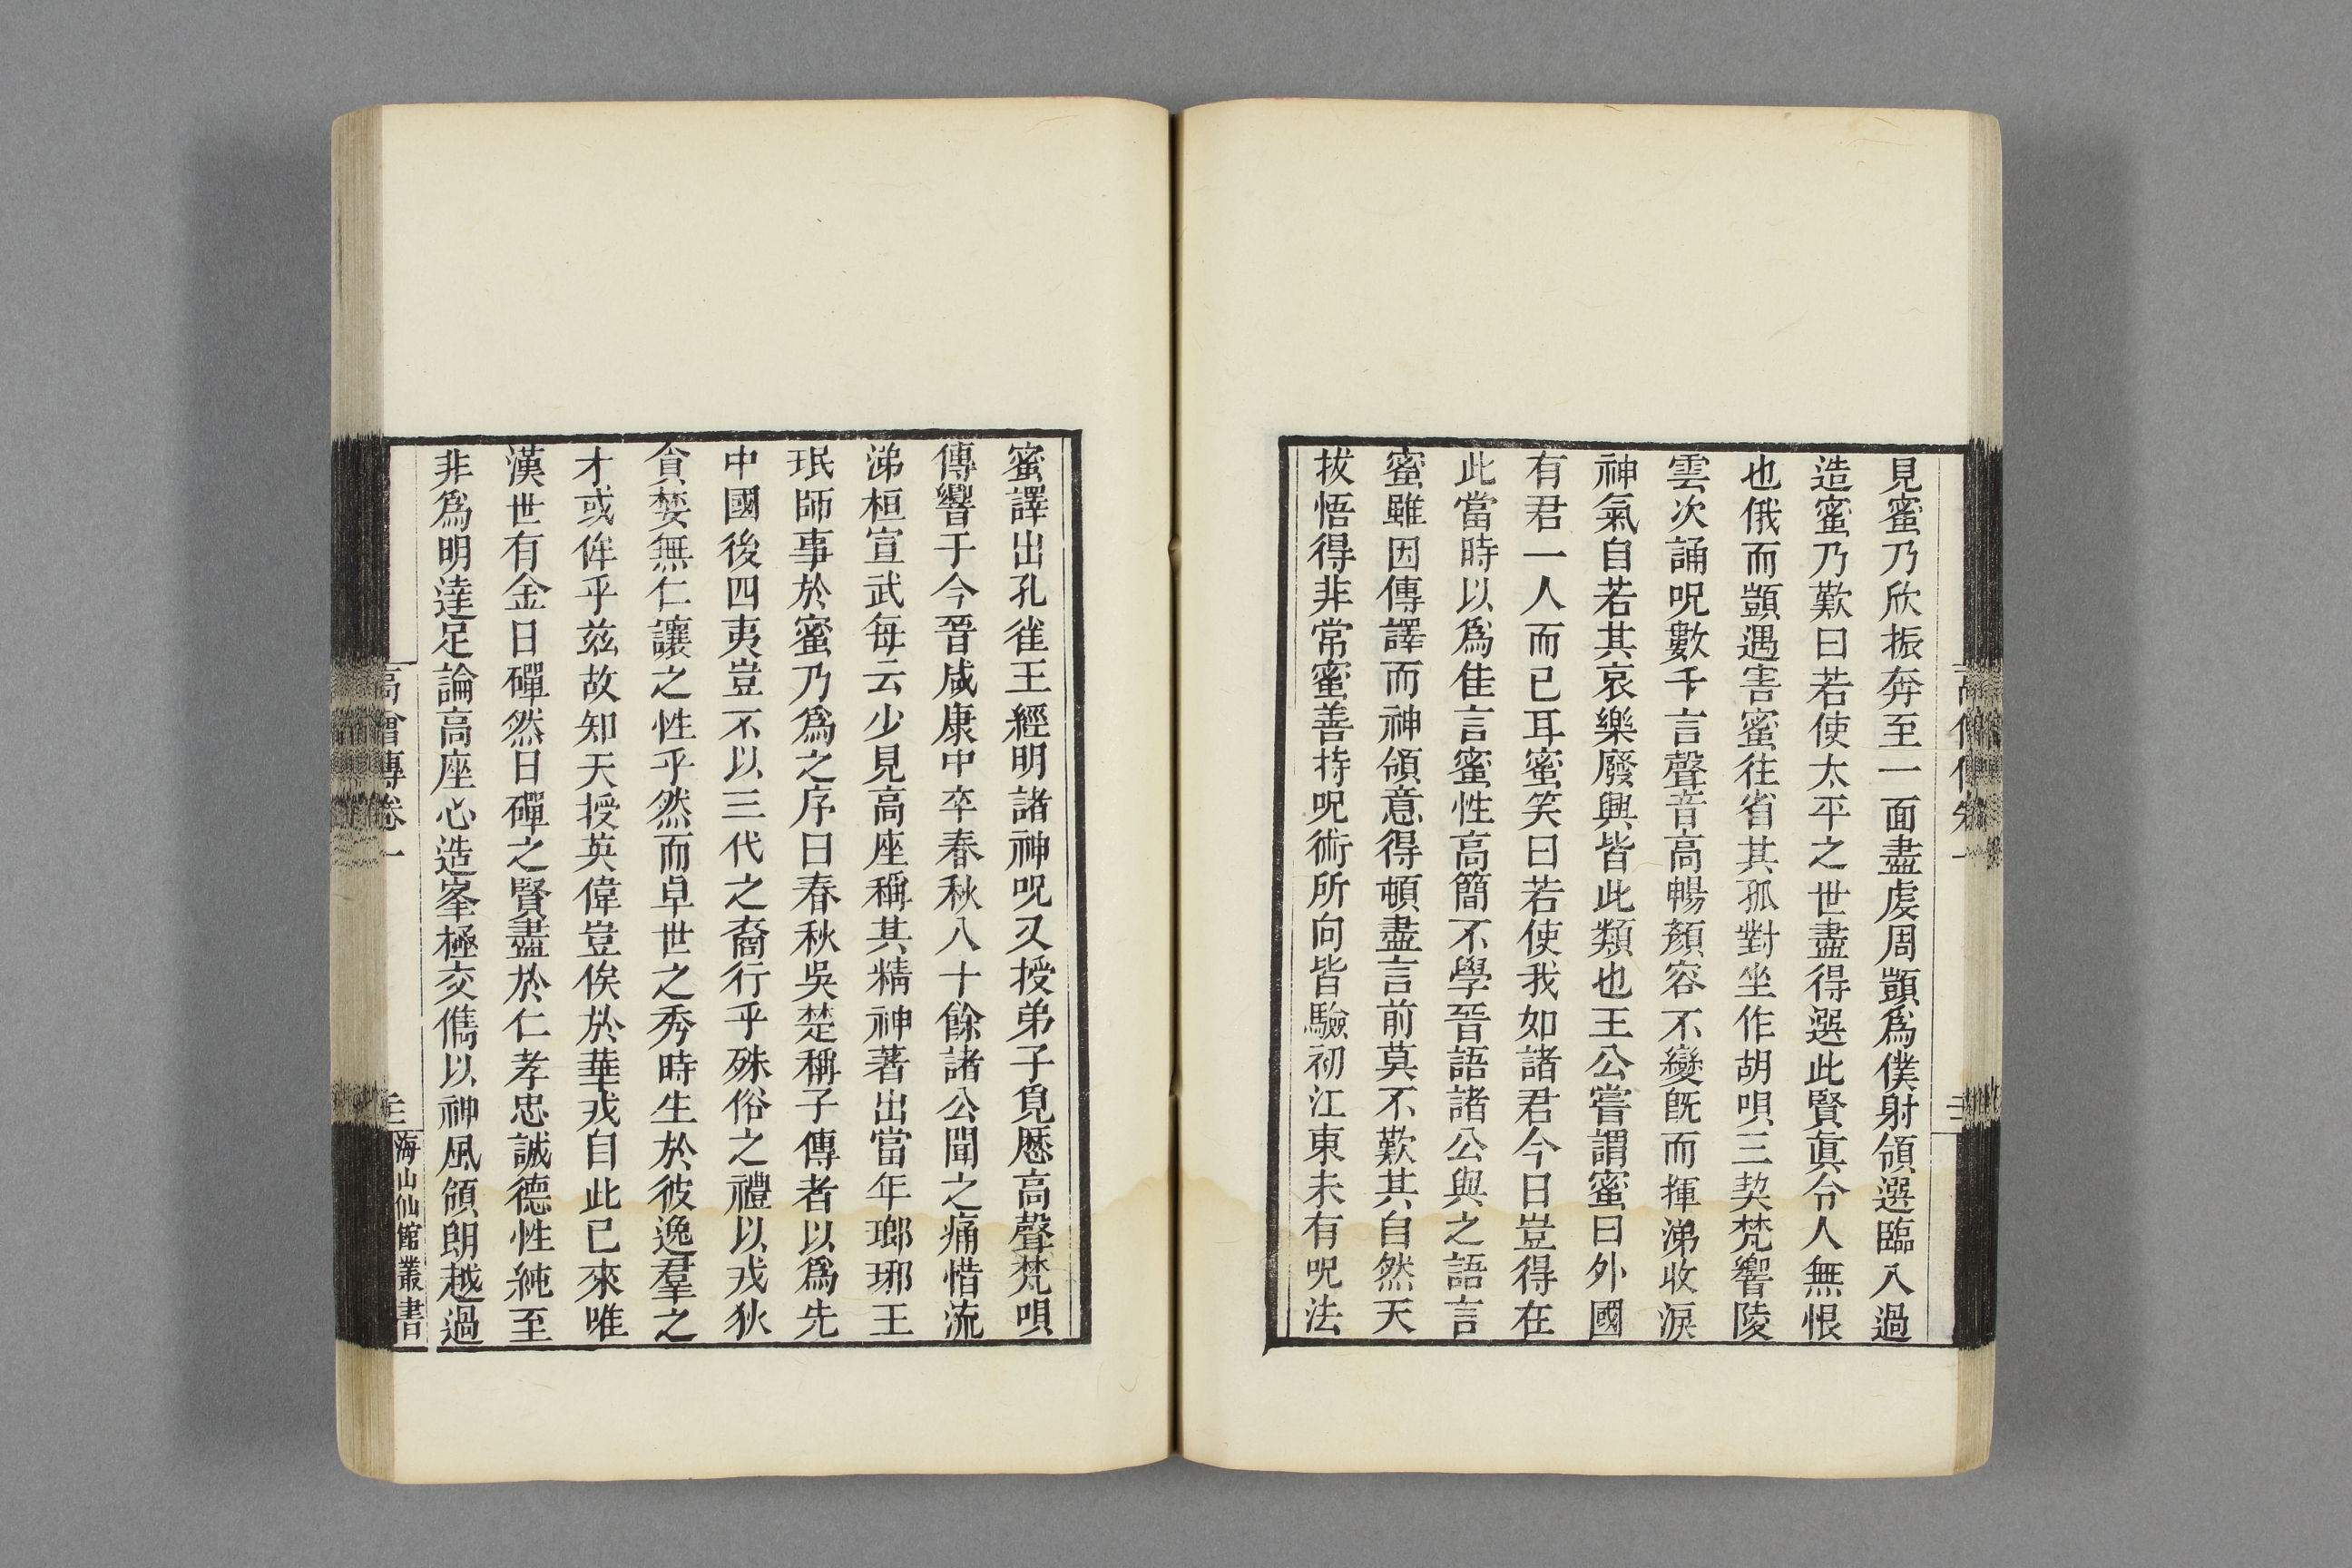 見蜜乃欣振奔至一面盡虔周顗爲僕射領選臨入過
造蜜乃歎曰若使太平之世盡得選此賢眞令人無恨
也俄而顗遇害蜜往省其孤對坐作胡唄三契梵響陵
雲次誦呪數千言聲音高暢顏容不變旣而揮涕收淚
神氣自若其哀樂廢興皆此類也王公嘗謂蜜曰外國
有君一人而已耳蜜笑曰若使我如諸君今日豈得在
此當時以爲佳言蜜性高簡不學晉語諸公與之語言
蜜雖因傳譯而神領意得頓盡言前莫不歎其自然天
拔悟得非常蜜善持呪術所向皆驗初江東未有呪法
蜜譯出孔雀王經明諸神呪又授弟子覓歷高聲梵唄
傳響于今晉咸康中卒春秋八十餘諸公聞之痛惜流
涕桓宣武每云少見高座稱其精神著出當年瑯琊王
珉師事於蜜乃爲之序曰春秋吳楚稱子傳者以爲先
中國後四夷豈不以三代之裔行乎殊俗之禮以戎狄
貪婪無仁讓之性乎然而卓世之秀時生於彼逸羣之
才或侔乎茲故知天授英偉豈俟於華戎自此已來唯
漢世有金日磾然日磾之賢盡於仁孝忠誠德性純至
非爲明達足論高座心造峯極交儁以神風領朗越過
高僧傳卷一
海山仙館叢書